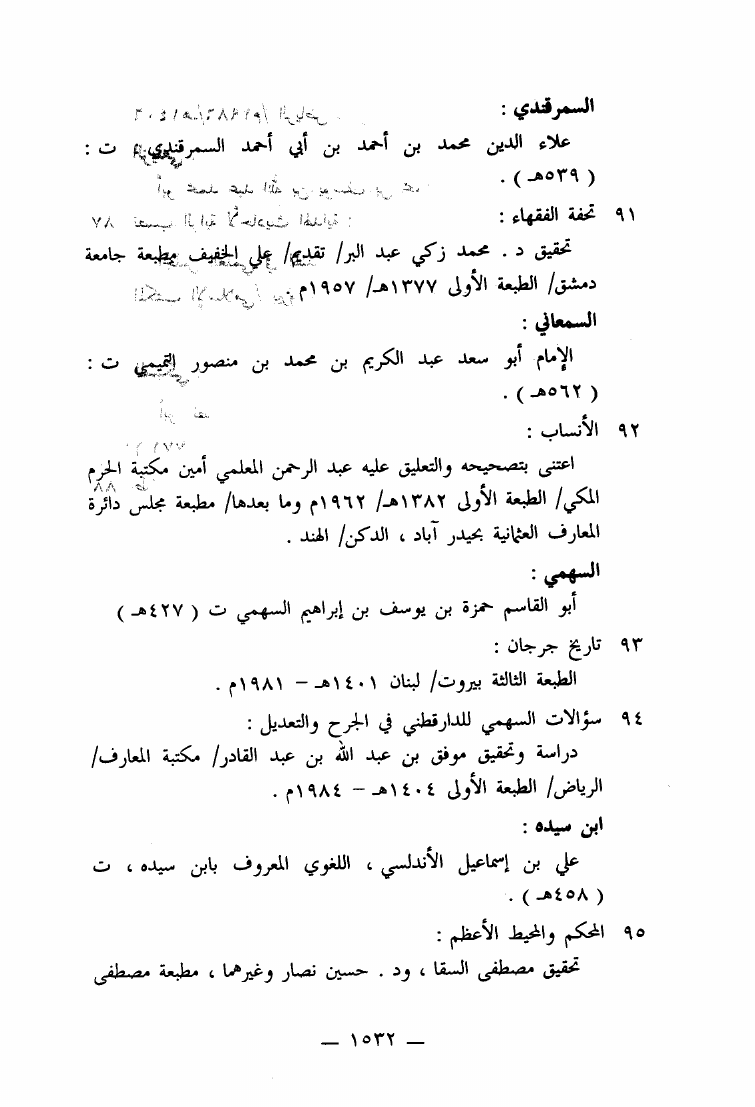 السمرقندي :
علاء الدين محمد بن أحمد بن أبي أحمد السمرقندي ت :
( ٥٣٩هـ ) .
٩١ تحفة الفقهاء :
تحقيق د . محمد زكي عبد البر/ تقديم/ علي الخفيف مطبعة جامعة
دمشق/ الطبعة الأولى ١٣٧٧هـ/ ١٩٥٧م
السمعاني :
الإمام أبو سعد عبد الكريم بن محمد بن منصور التميمي ت :
( ٥٦٢هـ ) .
٩٢ الأنساب :
اعتنى بتصحيحه والتعليق عليه عبد الرحمن المعلمي أمين مكتبة الحرم
المكي/ الطبعة الأولى ١٣٨٢هـ/ ١٩٦٢م وما بعدها/ مطبعة مجلس دائرة
المعارف العثمانية بحيدر آباد ، الدكن/ الهند .
السهمي :
أبو القاسم حمزة بن يوسف بن إبراهيم السهمي ت ( ٤٢٧هـ )
٩٣ تاريخ جرجان :
الطبعة الثالثة بيروت/ لبنان ١٤٠١هـ – ١٩٨١م .
٩٤ سؤالات السهمي للدارقطني في الجرح والتعديل :
دراسة وتحقيق موفق بن عبد الله بن عبد القادر/ مكتبة المعارف/
الرياض/ الطبعة الأولى ١٤٠٤هـ – ١٩٨٤م .
ابن سيده :
علي بن إسماعيل الأندلسي ، اللغوي المعروف بابن سيده ، ت
( ٤٥٨هـ ) .
٩٥ المحكم والمحيط الأعظم :
تحقيق مصطفى السقا ، ود . حسين نصار وغيرهما ، مطبعة مصطفى
— ١٥٣٢ —